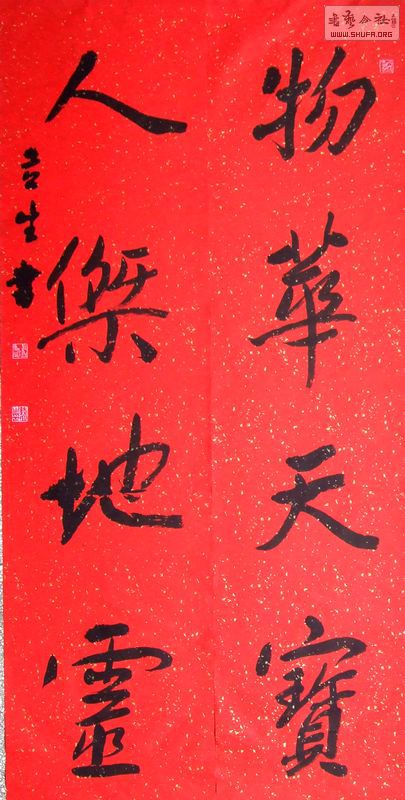 物華天寶
人傑地靈
吉生書
書藝公社
WWW.SHUFA.ORG